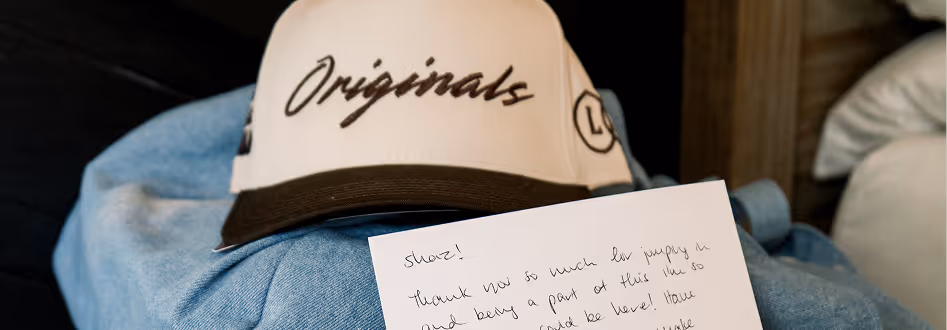 Originals
L
Shaz!
Thank you so much for jumping in
and being a part of this I'm so
could be here! Have